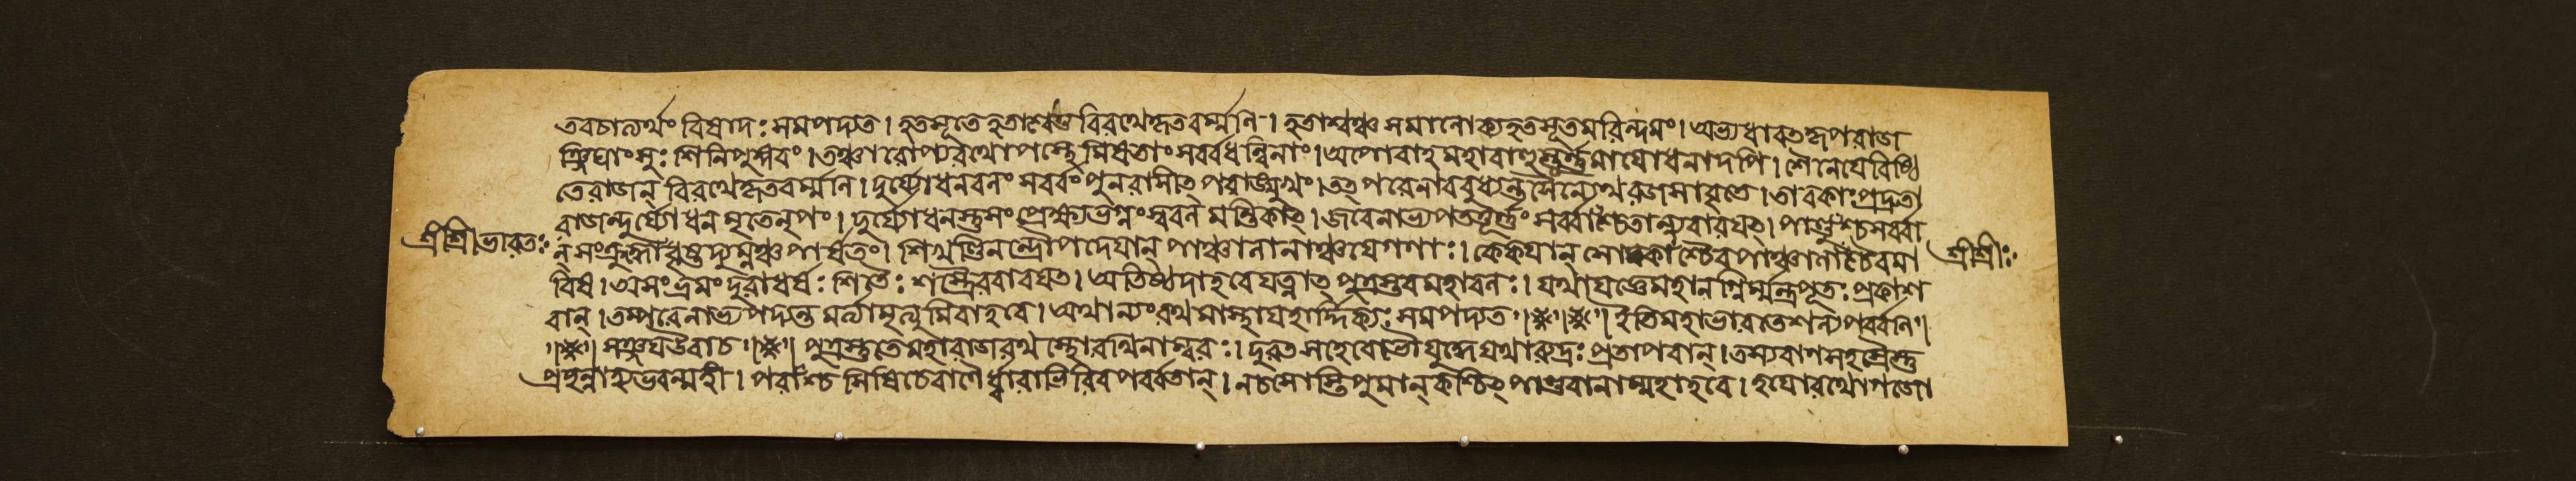 তবচাত্যর্থং বিষাদঃ সমপদ্যত। হতসূতে হতাশ্বেতু বিরথেকৃতবর্ম্মনি। হতাশ্বঞ্চ সমালোক্যহতসূতমরিন্দমং। অভ্যধাবতকৃপরাজ
ঞ্জিঘাংসুঃ শিনিপুঙ্গবং। তঞ্চারোপ্যরথোপস্থে মিষতাং সর্ব্বধন্বিনাং। অপোবাহমহাবাহুস্তূর্ন্নমাযোধনাদপি। শৈনেযেবিষ্ঠি
তেরাজন্ বিরথেকৃতবর্ম্মনি। দুর্য্যোধনবলং সর্ব্বং পুনরাসীৎ পরাঙ্মুখং। তৎ পরেনাববুধ্যন্তসৈন্যেথরজসাবৃতে। তাবকাঃপ্রদ্রুতা
রাজন্দুর্য্যোধনমৃতেনৃপং। দুর্য্যোধনস্তুসংপ্রেক্ষ্যভগ্নংস্ববলমন্তিকাৎ। জবেনাভ্যপতত্তূর্ন্নং সর্ব্বাংশ্চৈতান্ন্যবারযৎ। পাণ্ডুংশ্চসর্ব্বা
শ্রীশ্রী।ভারতঃ ন্ সংক্রুদ্ধোধৃষ্টদ্যুম্নঞ্চপার্ষতং। শিখণ্ডিনন্দ্রৌপদেযান্ পাঞ্চালানাঞ্চযেগণাঃ। কেকযান্ সোমকাংশ্চৈবপাঞ্চালাংশ্চৈবমা শ্রীশ্রীঃ
বিষ। অসংভ্রমং দুরাধর্ষঃ শিতৈঃ শস্ত্রৈরবারযত। অতিষ্ঠদাহবেযত্নাৎ পুত্রস্তবমহাবলঃ। যথাযজ্ঞেমহানগ্নির্ম্মন্ত্রপূতঃ প্রকাশ
বান্। তম্পরেনাভ্যপদ্যন্তমর্ত্যামৃত্যুমিবাহবে। অথান্যংরথমাস্থাযহার্দ্দিক্যঃ সমপদ্যত। ইতিমহাভারতেশল্যপর্ব্বনি
সঞ্জযউবাচ। পুত্রস্তুতেমহারাজরথস্থোরথিনাম্বরঃ। দুরুৎসহোবভৌযুদ্ধেযথারুদ্রঃ প্রতাপবান্। তস্যবাণসহস্রৈস্তু
প্রচ্ছন্নাহ্যভবন্মহী। পরাংশ্চ সিষিচেবাণৈর্দ্ধারাভিরিবপর্ব্বতান্। নচসোস্তিপুমান্কশ্চিৎ পাণ্ডবানাম্মহাহবে। হযোরথোগজো